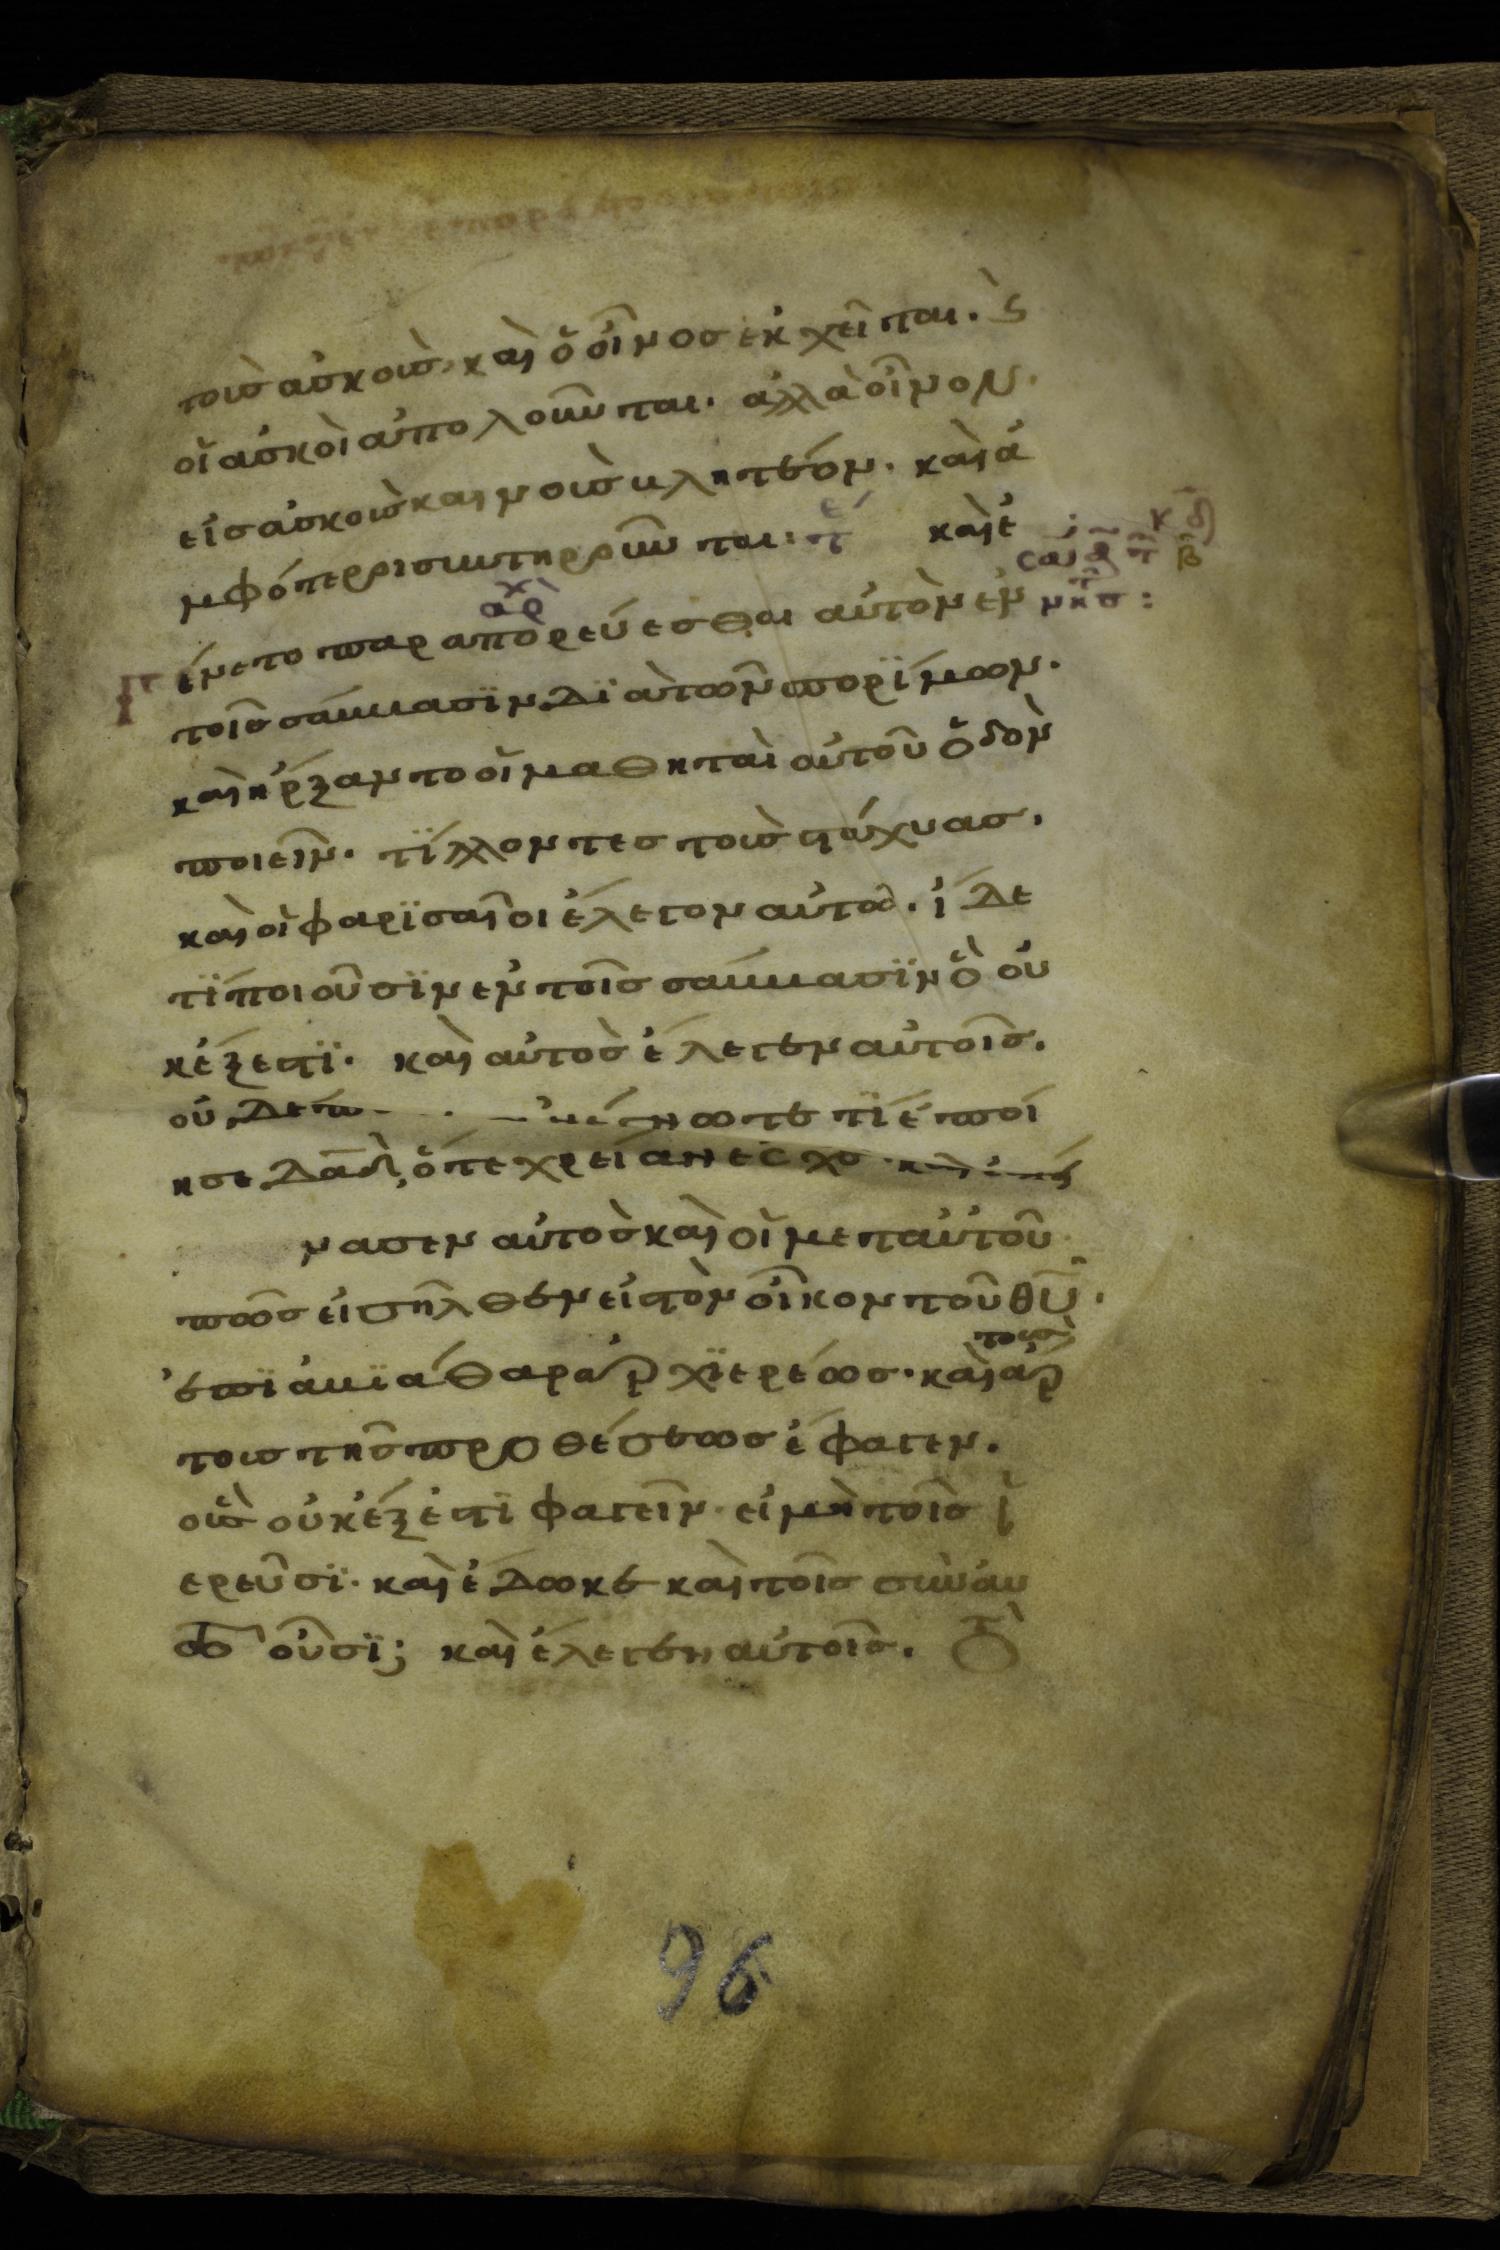 τοὺσ ἀσκούσ, καὶ ὁ οἶνοσ ἐκχεῖται. ϛ̀
οἱ ἀσκοὶ ἀπολοῦνται. ἀλλὰ οἶνον
εἰσ ἀσκοὺσ καινοὺσ βλητέον. καὶ ἀ
μφότεροι συντηροῦνται: τέ καὶ ἐ
ἀρχ
γένετο παραπορεύεσθαι αὐτὸν ἐν
τοῖσ σάββασϊν δϊὰ τῶν σπορΐμων.
καὶ ἤρξαντο οἱ μαθηταὶ αὐτοῦ ὁδὸν
ποιεῖν. τΐλλοντεσ τοὺσ στάχυασ.
καὶ οἱ φαρϊσαῖοι ἔλεγον αὐτῶ. ἴδε
τΐ ποιοῦσϊν ἐν τοῖσ σάββασϊν ὃ οὐ
κ ἔξεστϊ. καὶ αὐτὸσ ἔλεγεν αὐτοῖσ.
οὐδέπ ἀνέγνωτε τΐ ἐποί
ησε δᾱδ, ὅτε χρείαν ἔσχε καὶ ἐπεί
νασεν αὐτὸσ καὶ οἱ μετ αὐτοῦ
πῶσ εἰσῆλθεν εἰσ τὸν οἶκον τοῦ θῡ.
τοὺσ
ἐπϊ ἀβϊάθαρ ἀρχϊερέωσ. καὶ ἄρ
τουσ τῆσ προθέσεωσ ἔφαγεν.
οὓσ οὐκ ἔξεστϊ φαγεῖν. εἰ μὴ τοῖσ ἱ
ερεῦσϊ. καὶ ἔδωκε καὶ τοῖσ σὺν αὐ
τῶ οὖσϊ; καὶ ἔλεγεν αὐτοῖσ. ὅτι
96